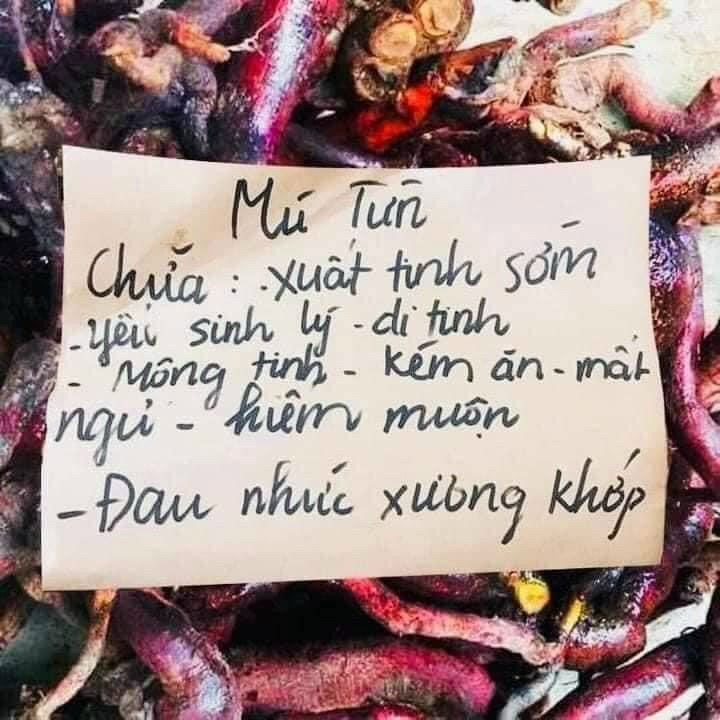 Mú Từn
Chữa : . xuất tinh sớm
- yếu sinh lý - di tinh
- Mộng tinh - kém ăn - mất
ngủ - hiếm muộn
- Đau nhức xương khớp